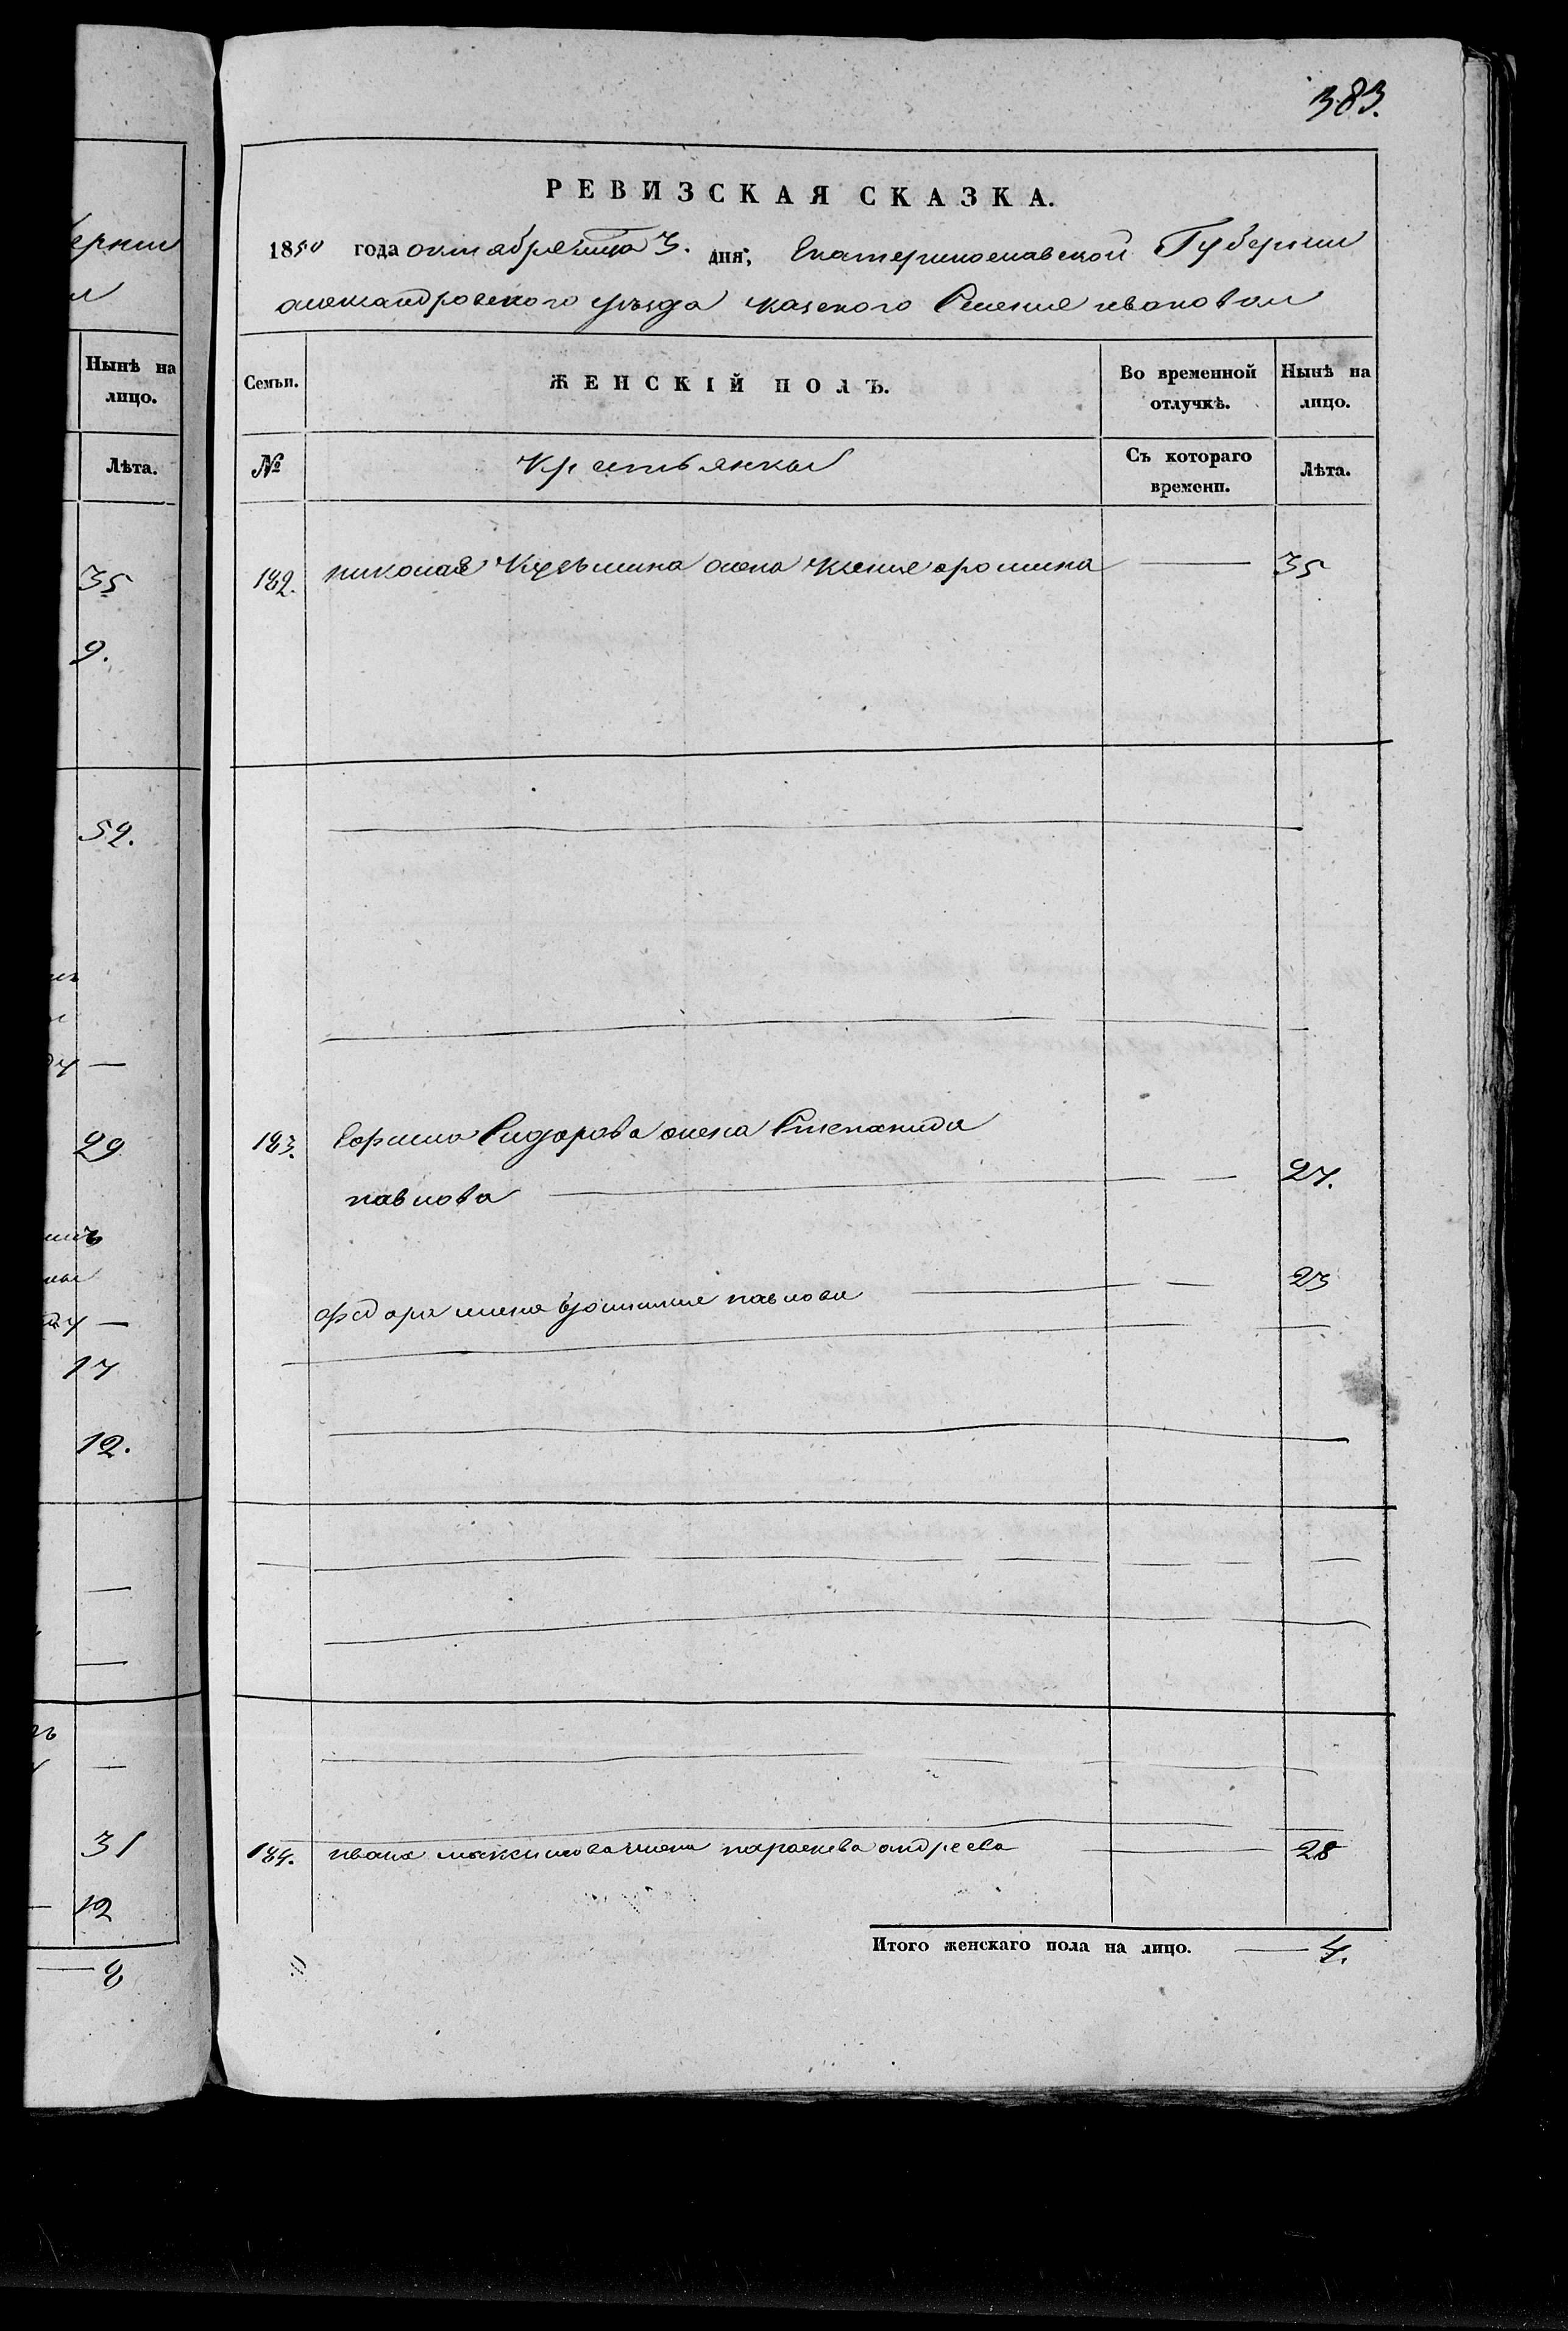 383.
РЕВИЗСКАЯ СКАЗКА.
1850 года октября мца 3. дня, Екатеринославской Губернии
александровского уезда казеного Селения ивановки
Семьи.
ЖЕНСКІЙ ПОЛЪ.
Во временной отлучкѣ.
Нынѣ на лицо.
№
Крестьянкы
Съ котораго времени.
Лѣта.
182. николая Кузьмина жена Ксения 35
183. Ефима Сидорова жена Степанида
павлова 27.
федора жена павлова 23
184. ивана максимова жена параскева андреева 28
Итого женскаго пола на лицо. 4.
ерниы
Нынѣ на лицо.
Лѣта.
35
9.
52.
29
17
12.
31
12
8